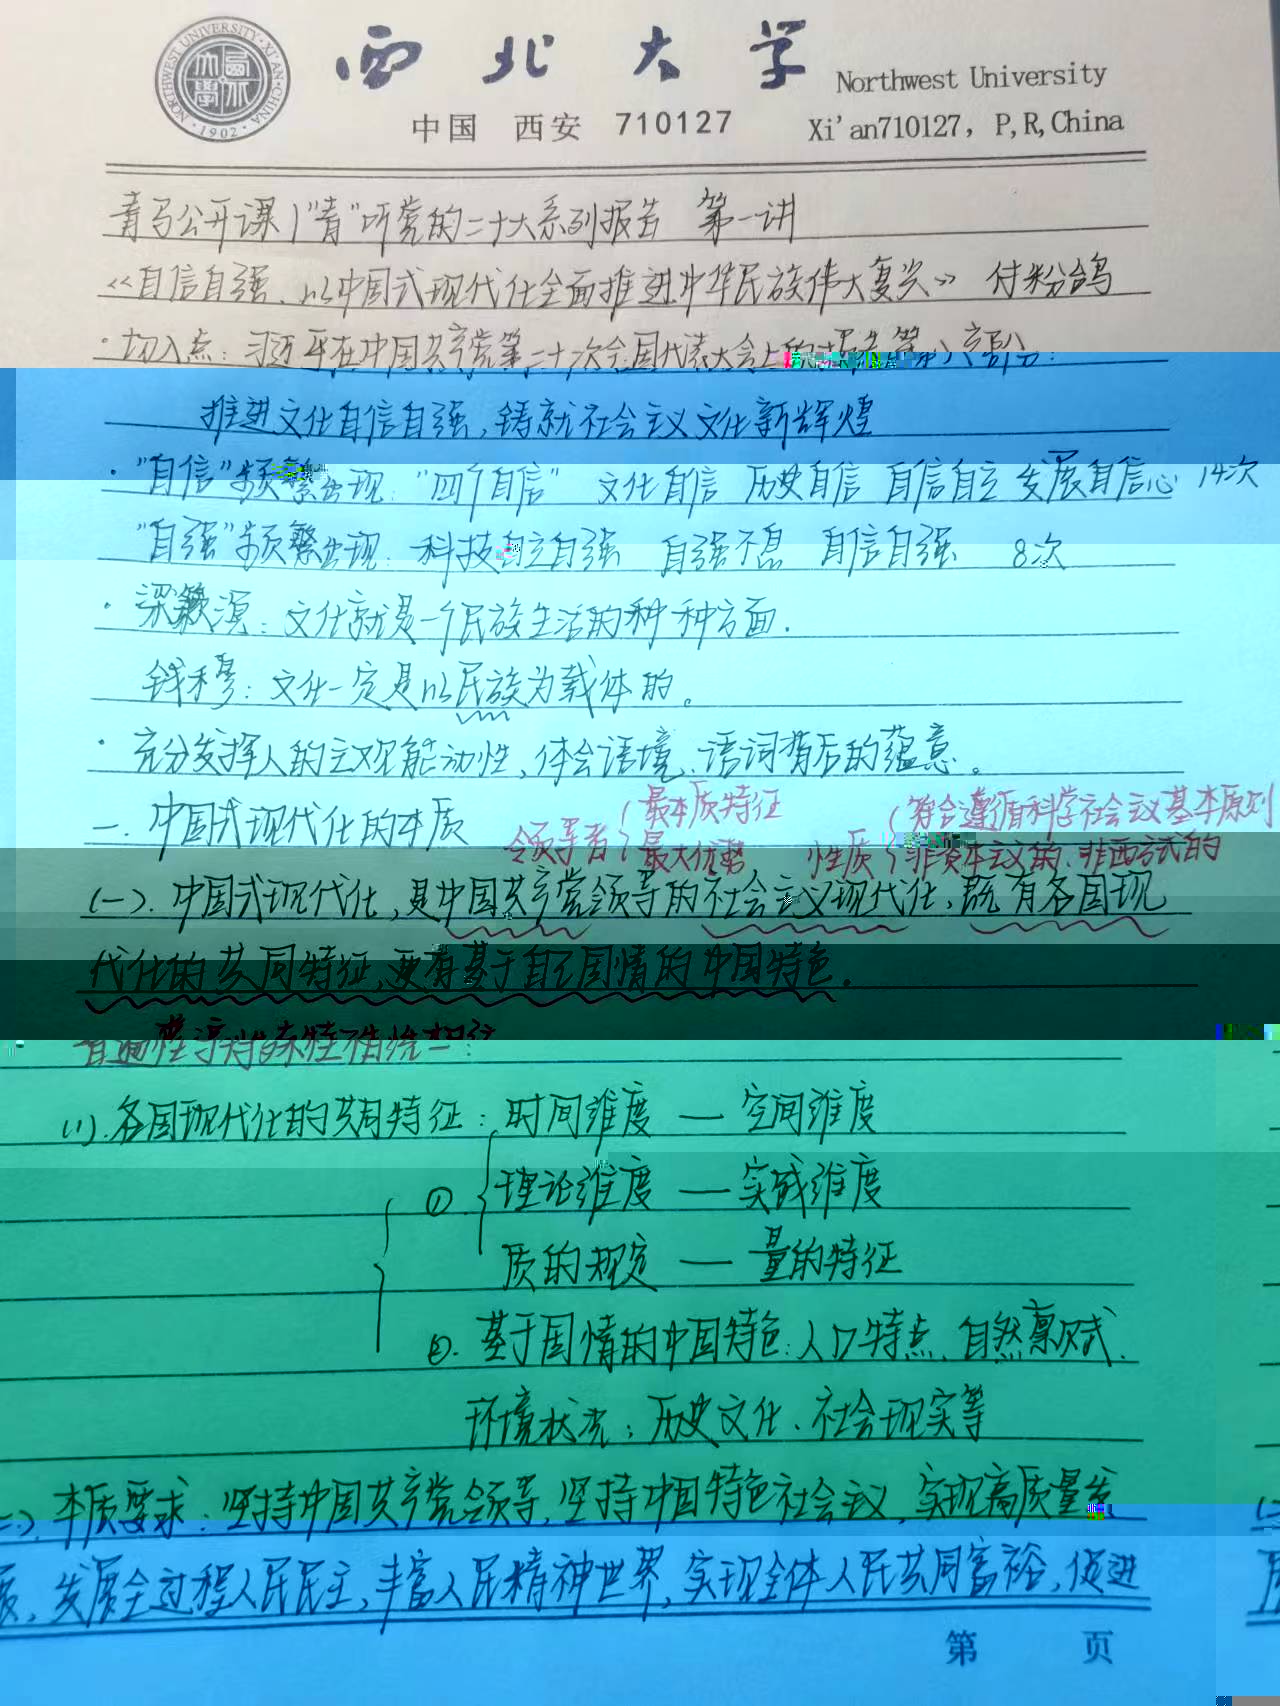 西北大学 Northwest University
中国 西安 710127 Xi'an710127, P,R,China
NORTHWEST UNIVERSITY·XI'AN·CHINA ·1902·
青马公开课|"青"听党的二十大系列报告 第一讲
《自信自强、以中国式现代化全面推进中华民族伟大复兴》 付粉鸽
·切入点：习近平在中国共产党第二十次全国代表大会上的报告第八部分：
推进文化自信自强,铸就社会主义文化新辉煌
·"自信"频繁出现："四个自信" 文化自信 历史自信 自信自立 发展自信心 14次
"自强"频繁出现：科技自立自强 自强不息 自信自强 8次
·梁漱溟：文化就是一个民族生活的种种方面.
钱穆：文化一定是以民族为载体的。
·充分发挥人的主观能动性,体会语境、语词背后的蕴意。
一.中国式现代化的本质
领导者{最本质特征 性质{符合遵循科学社会主义基本原则
最大优势 非资本主义的、非西方式的
(一).中国式现代化,是中国共产党领导的社会主义现代化,既有各国现
代化的共同特征,更有基于自己国情的中国特色.
普遍性与特殊性相统一
(1).各国现代化的共同特征：时间维度 — 空间维度
①.理论维度 — 实践维度
质的规定 — 量的特征
②.基于国情的中国特色：人口特点、自然禀赋、
环境状况；历史文化、社会现实等
(二).本质要求：坚持中国共产党领导,坚持中国特色社会主义,实现高质量发
展,发展全过程人民民主,丰富人民精神世界,实现全体人民共同富裕,促进
第 页